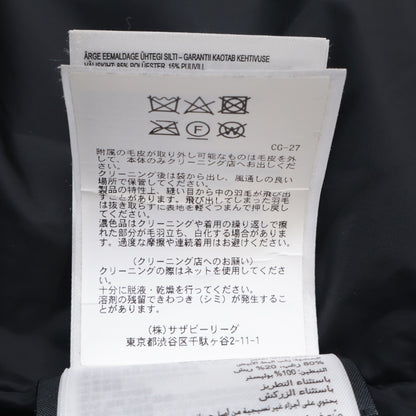 ÄRGE EEMALDAGE ÜHTEGI SILTI – GARANTII KAOTAB KEHTIVUSE
VÄLISKIHT: 85% POLÜESTER, 15% PUUVILL
CG-27
附属の毛皮が取り外し可能なものは毛皮を外
して、本体のみクリーニング店へお出しくださ
い。
クリーニング後は袋から出し、風通しの良い
場所で保管してください。
製品の特性上、縫い目から中の羽毛が飛び出
すことがあります。飛び出してしまった羽毛
は抜き取らずに表地を軽くつまんで押し戻し
てください。
濃色品はクリーニングや着用の繰り返しで擦
れた部分が毛羽立ち、白化する場合がありま
す。過度な摩擦や連続着用はお避けください。
(クリーニング店へのお願い)
クリーニングの際はネットを使用してくださ
い。
十分に脱液・乾燥を行ってください。
溶剤の残留できわつき(シミ)が発生するこ
とがあります。
(株)サザビーリーグ
東京都渋谷区千駄ヶ谷2-11-1
باستثناء التطريز
باستثناء الزركش